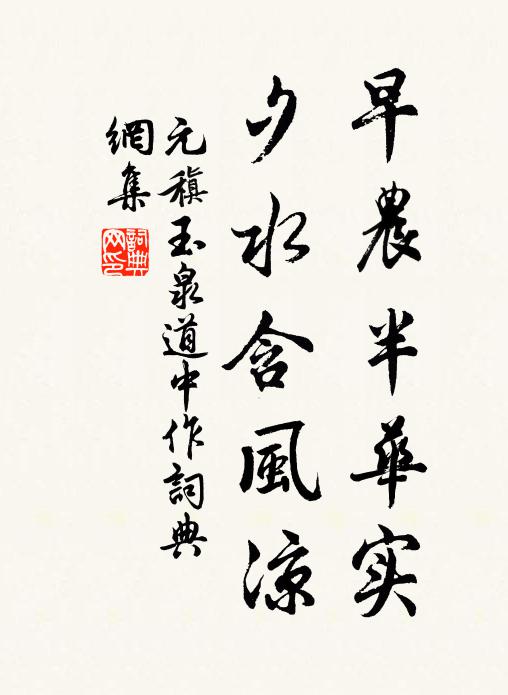 早農半華实
夕水含風涼
元稹玉泉道中作詞典
網集
詞典
网印